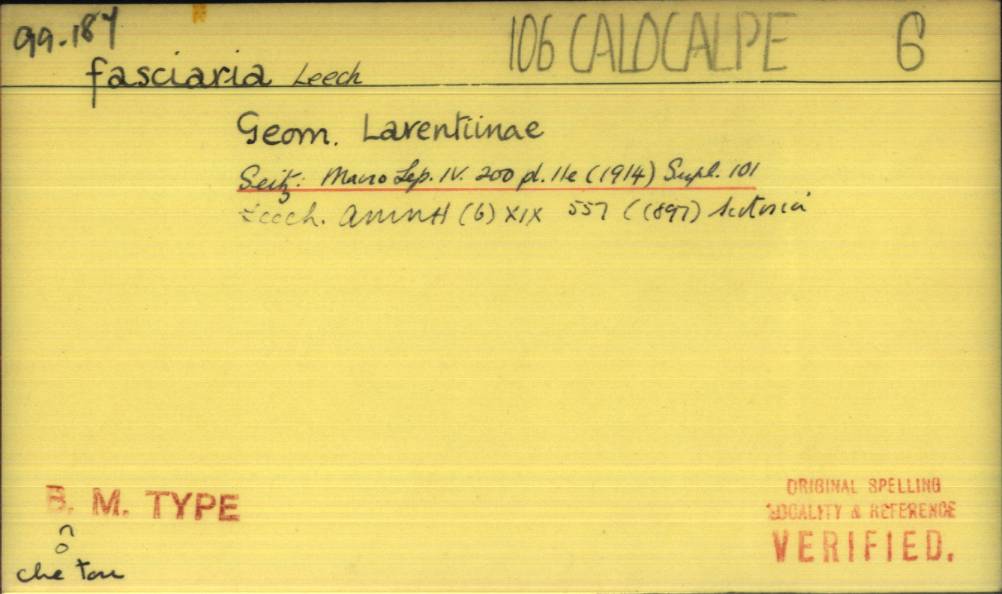 99.187
106 CALOCALPE 6
fasciaria Leech
Geom. Larentiinae
Seitz: Macro Lep. IV. 200 pl. 11e (1914) Supl. 101
Leech. AMNH (6) XIX 557 (1897)
B. M. TYPE
ORIGINAL SPELLING
LOCALITY & REFERENCE
VERIFIED.
che tou